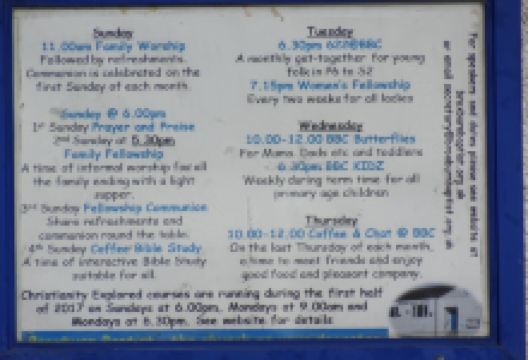 Sunday
11.00am Family Worship
Followed by refreshments.
Communion is celebrated on the
first Sunday of each month.
Sunday @ 6.00pm
1st Sunday Prayer and Praise
2nd Sunday at 5.30pm
Family Fellowship
A time of informal worship for all
the family ending with a light
supper.
3rd Sunday Fellowship Communion
Share refreshments and
communion round the table.
4th Sunday Coffee Bible Study
A time of interactive Bible Study
suitable for all.
Tuesday
6.30pm @BBC
A monthly get-together for young
folk in P6 to S2
7.15pm Women's Fellowship
Every two weeks for all ladies
Wednesday
10.00-12.00 BBC Butterflies
For Mums, Dads etc and toddlers
6.30pm BBC KIDZ
Weekly during term time for all
primary age children
Thursday
10.00-12.00 Coffee & Chat @ BBC
On the last Thursday of each month,
a time to meet friends and enjoy
good food and pleasant company.
For speakers and dates please see website at
or email
Christianity Explored courses are running during the first half
of 2017 on Sundays at 6.00pm, Mondays at 9.00am and
Mondays at 6.30pm. See website for details